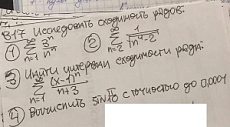 В17 Исследовать сходимость рядов:
① ∞ Σ n=1 3ⁿ/nⁿ ② ∞ Σ n=2 1/√(n⁴-2)
③ Найти интервал сходимости ряда:
∞ Σ n=1 (x-1)ⁿ/(n+3)
④ Вычислить с точностью до 0,001